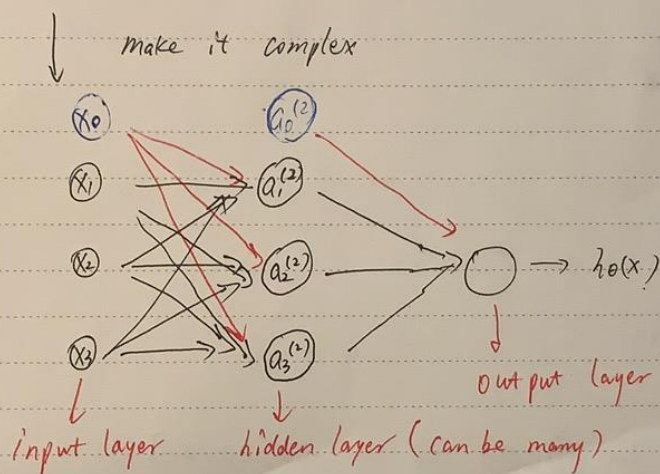 make it complex
x₀ a₀⁽²
x₁ a₁⁽²⁾
x₂ a₂⁽²⁾ → hθ(x)
x₃ a₃⁽²⁾
output layer
input layer hidden layer (can be many)